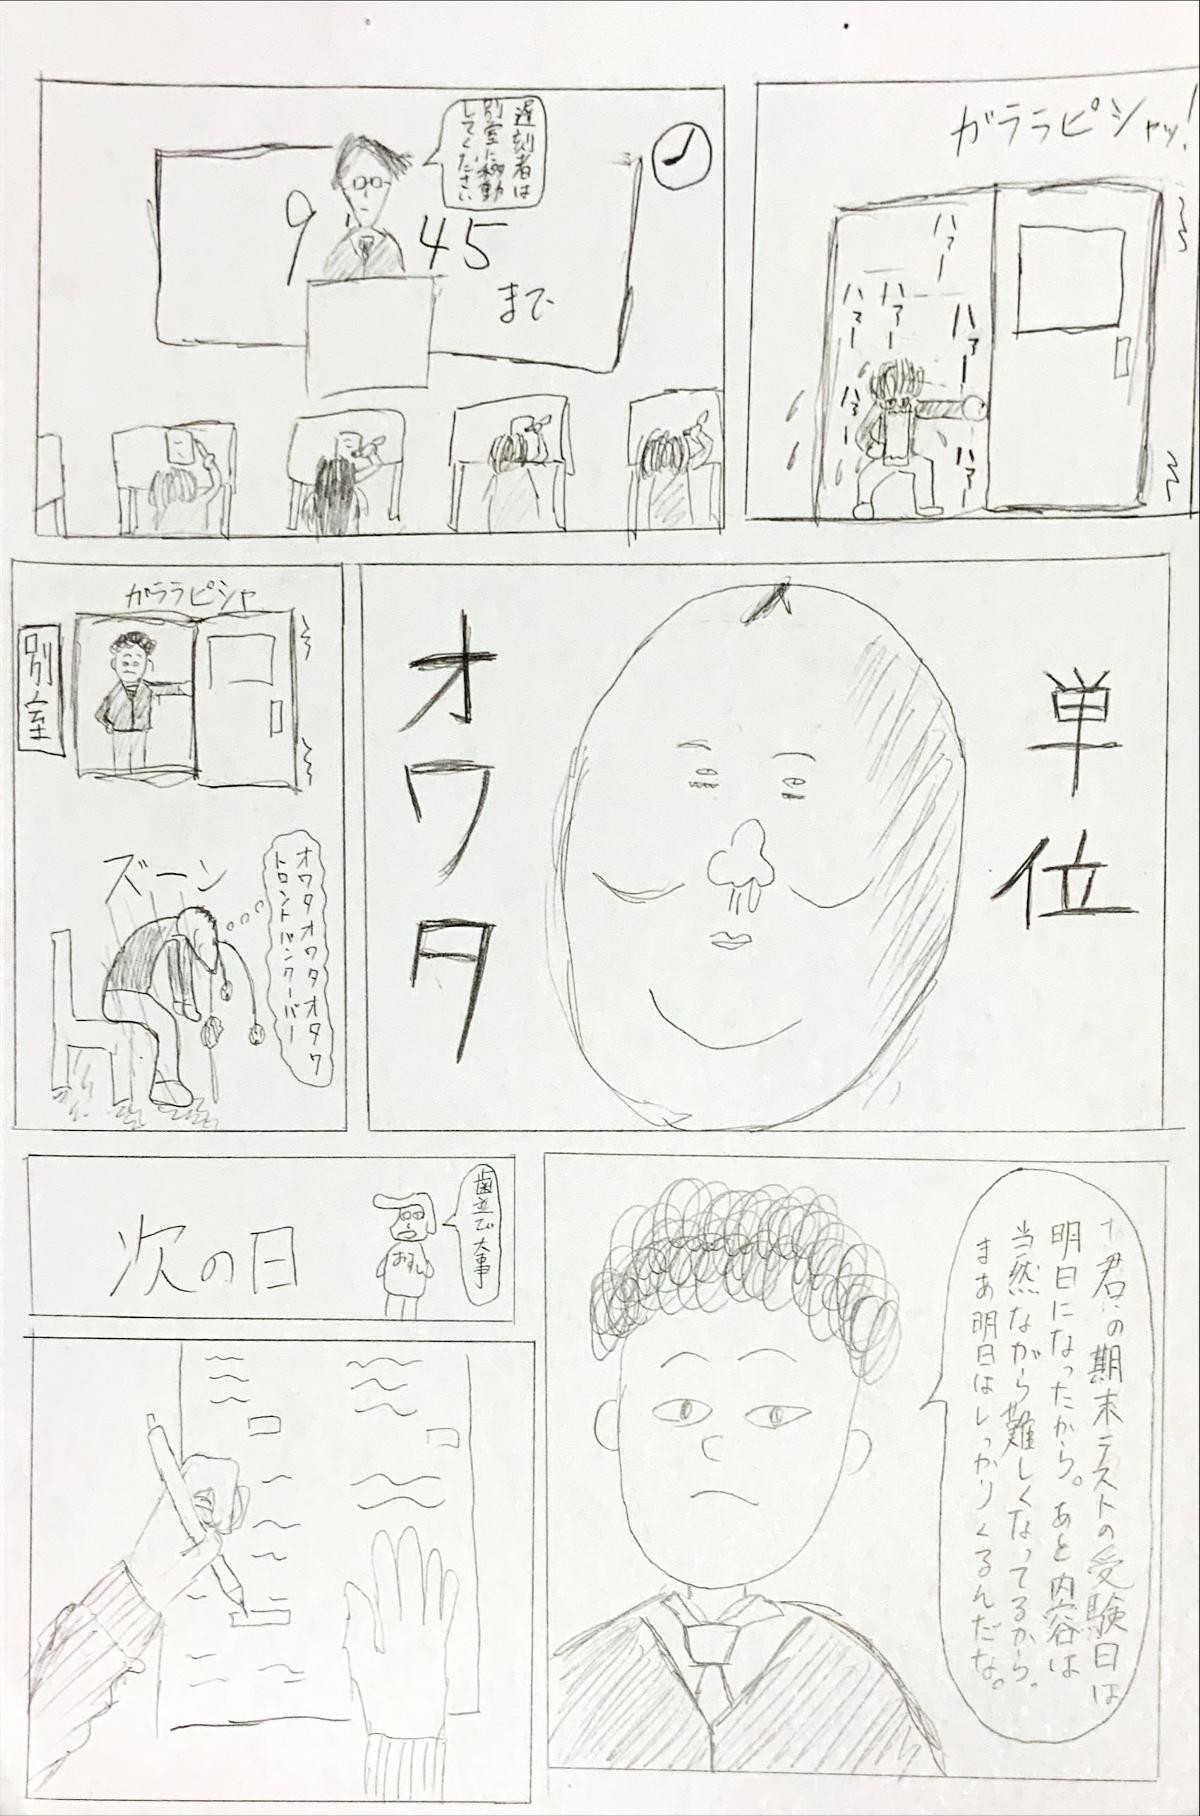 ガララピシャッ!
ハァー
ハァー
ハァー
ハァー
ハァー
ハァー
遅刻者は
別室に移動
してください
9:45
まで
単位
オワタ
ガララピシャ
別室
ズーン
オワタオワタオタワ
トロントバンクーバー
君の期末テストの受験日は
明日になったから。あと内容は
当然ながら難しくなってるから。
まあ明日はしっかりくるんだな。
次の日
歯並び大事